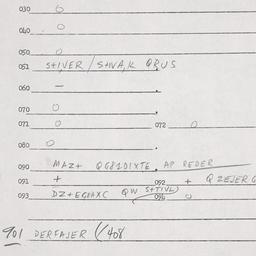 030 0
040 0
050 0
051 STIVER / SHVA,K QBUS
060 - .
070 0 .
071 0 072 0
080 0 .
090 MAZ+ QG8101XTE. AP REDER
091 + 092 + QZEJERG
093 DZ+EGHAXC QW S+TIVL) 096 0
901 DERFAJER (408